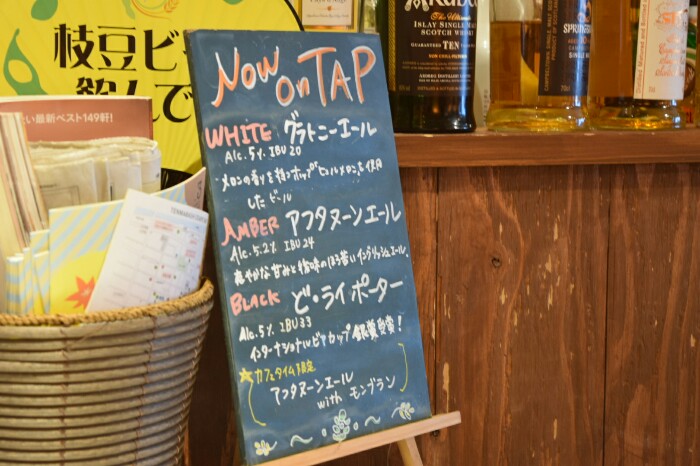 枝豆ビ
飲んで
い最新ベスト149軒!
Now on TAP
WHITE グラトニーエール
Alc.5% IBU20
・メロンの香りを持つホップ"ヒュルメロン"を使用
したビール
AMBER アフタヌーンエール
Alc.5.2% IBU24
爽やかな甘みと後味のほろ苦いイングリッシュエール。
BLACK ど・ライポーター
Alc.5% IBU33
インターナショナルビアカップ 銀賞受賞!
★カフェタイム限定
アフタヌーンエール
with モンブラン
ARDBEG
The Ultimate
ISLAY SINGLE MALT
SCOTCH WHISKY
GUARANTEED TEN YEARS OLD
NON CHILL-FILTERED
SPRINGBANK
SINGLE MALT